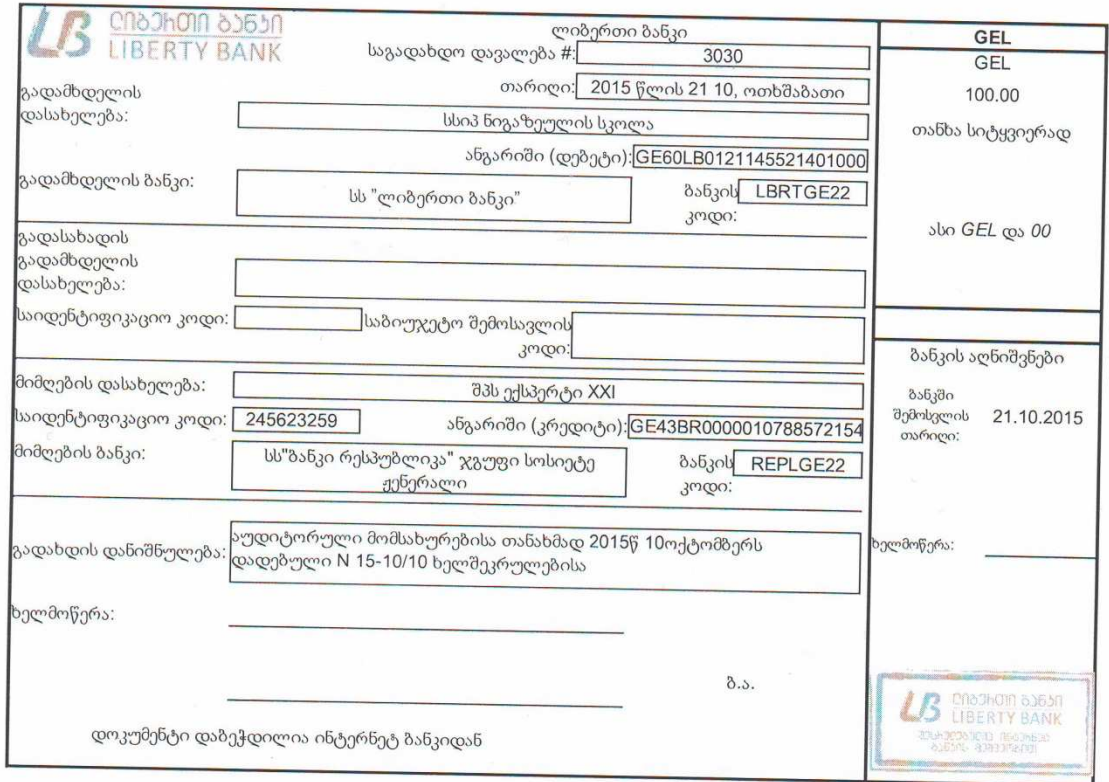 ლიბერთი ბანკი
LIBERTY BANK
ლიბერთი ბანკი
საგადახდო დავალება #: 3030
თარიღი: 2015 წლის 21 10, ოთხშაბათი
გადამხდელის
დასახელება: სსიპ ნიგაზეულის სკოლა
ანგარიში (დებეტი): GE60LB0121145521401000
გადამხდელის ბანკი: სს "ლიბერთი ბანკი" ბანკის კოდი: LBRTGE22
გადასახადის
გადამხდელის
დასახელება:
საიდენტიფიკაციო კოდი: საბიუჯეტო შემოსავლის
კოდი:
მიმღების დასახელება: შპს ექსპერტი XXI
საიდენტიფიკაციო კოდი: 245623259 ანგარიში (კრედიტი): GE43BR0000010788572154
მიმღების ბანკი: სს"ბანკი რესპუბლიკა" ჯგუფი სოსიეტე
ჟენერალი
ბანკის კოდი: REPLGE22
გადახდის დანიშნულება: აუდიტორული მომსახურებისა თანახმად 2015წ 10ოქტომბერს
დადებული N 15-10/10 ხელშეკრულებისა
ხელმოწერა:
ბ.ა.
დოკუმენტი დაბეჭდილია ინტერნეტ ბანკიდან
GEL
GEL
100.00
თანხა სიტყვიერად
ასი GEL და 00
ბანკის აღნიშვნები
ბანკში
შემოსვლის
თარიღი: 21.10.2015
ხელმოწერა:
ლიბერთი ბანკი
LIBERTY BANK